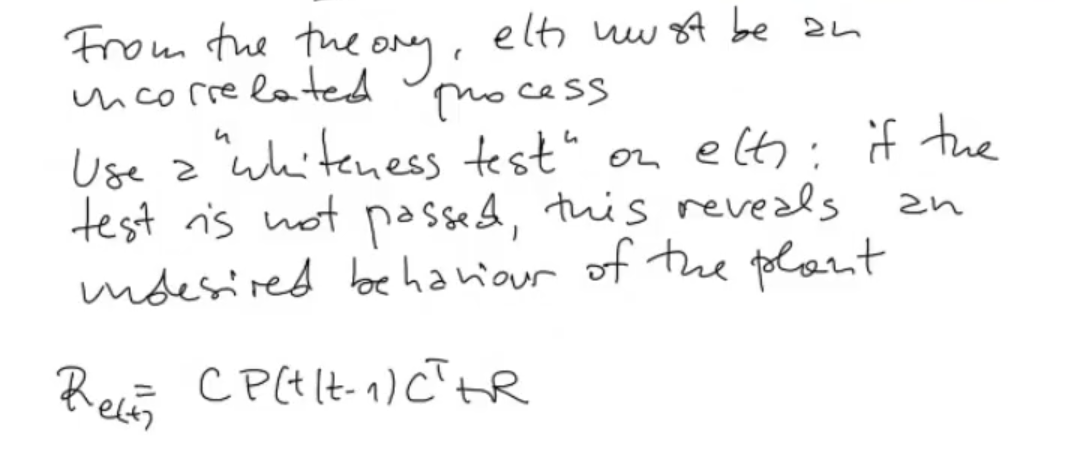 From the theory, e(t) must be an
uncorrelated process
Use a "whiteness test" on e(t): if the
test is not passed, this reveals an
undesired behaviour of the plant
R_{e(t)} = C P(t|t-1) C^T + R